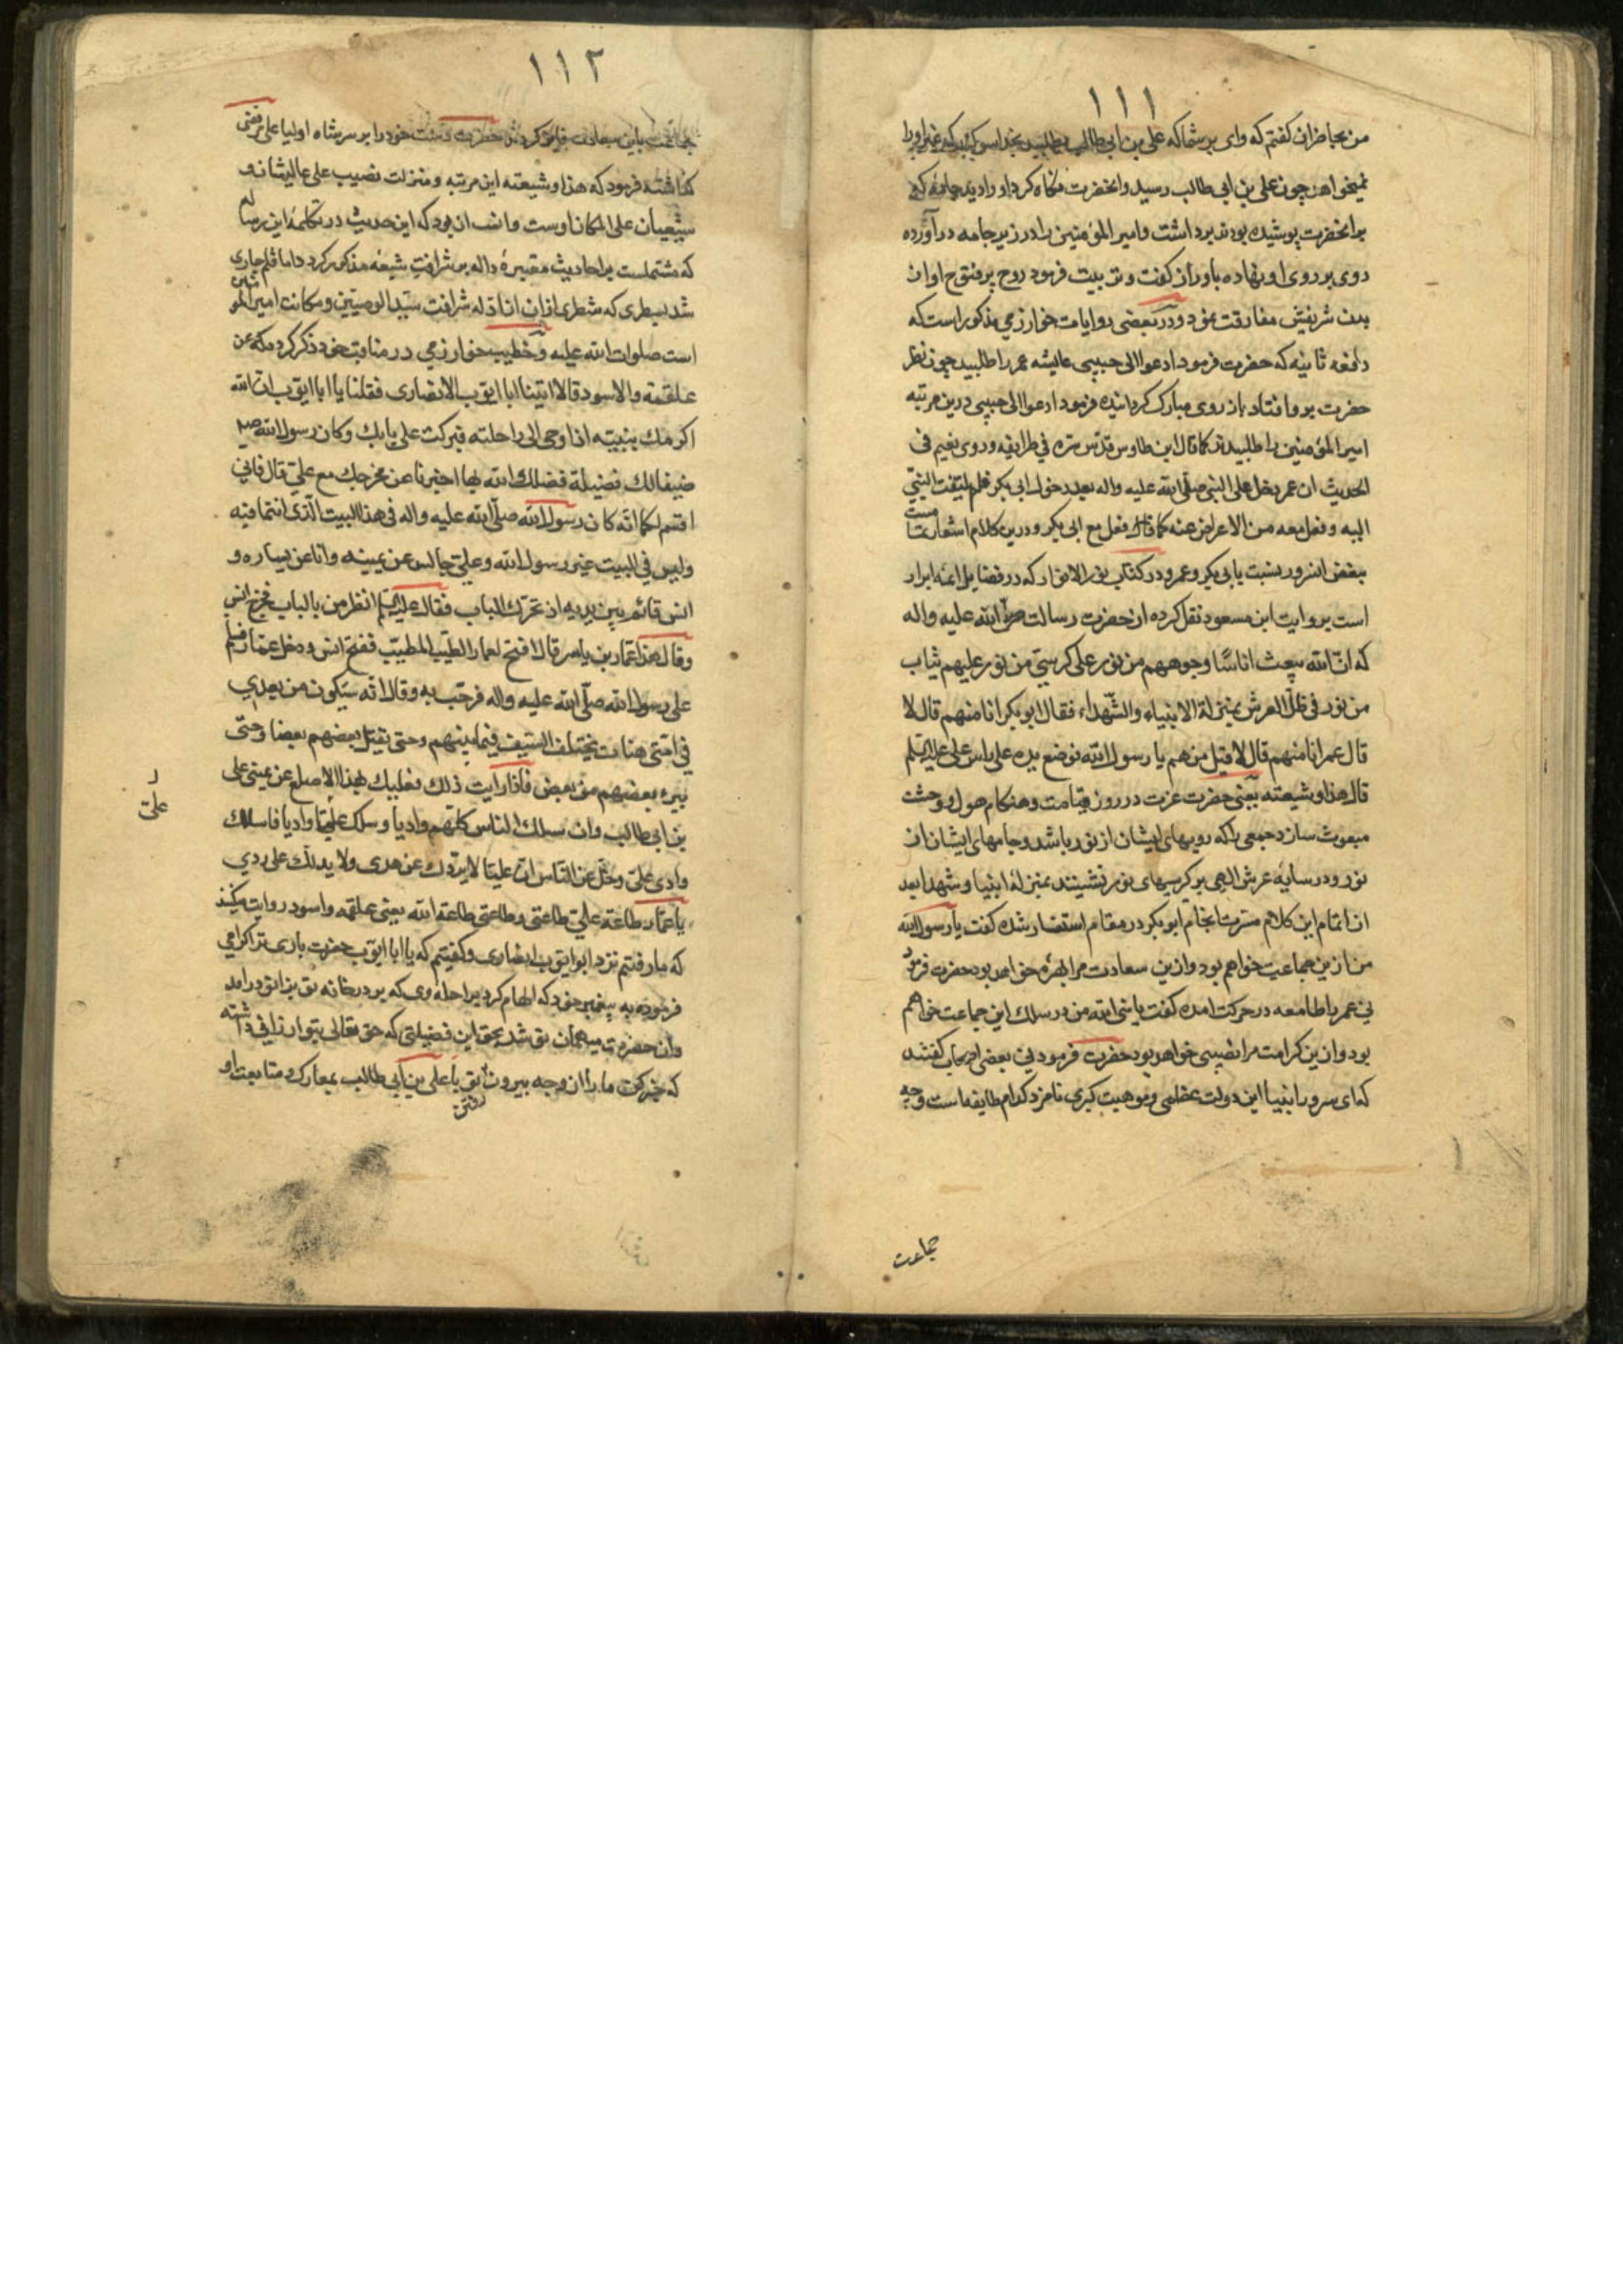 ١١١
من بحاضران کفتم که وای بر شما که علی بن ابی طالب بطلبید بخدا سوکند که غیر او را
نمیخواهد چون علی بن ابی طالب رسید و انحضرت نکاه کرد او را دید جامهٔ که
بر انحضرت پوشیده بودند برداشت و امیر المؤمنین را در زیر جامه در آورده
روی بر روی او نهاده باو راز کفت و تربیت فرمود روح پر فتوح او از
بدن شریفش مفارقت نمود و در بعضی روایات خوارزمی مذکور است که
دفعه ثانیه که حضرت فرمود ادعوا الی حبیبی عایشه عمر را طلبید چون نظر
حضرت برو افتاد باز روی مبارک کردانیده فرمود ادعوا الی حبیبی درین مرتبه
امیر المؤمنین را طلبیدند کما قال ابن طاوس قدّس سرّه فی طرایفه و روی نعیم فی
الحدیث ان عمر دخل علی النبی صلّی الله علیه واله بعد دخول ابی بکر فلم یلتفت النبیّ
الیه و فعل معه من الاعراض عنه کما فعل مع ابی بکر و درین کلام اشعاریست
ببغض انسرور بنسبت بابی بکر و عمر و در کتاب نور الانوار که در فضایل ائمه ابرار
است بروایت ابن مسعود نقل کرده از حضرت رسالت صلّی الله علیه واله
که انّ الله یبعث اناسًا وجوههم من نور علی کرسیّ من نور علیهم ثیاب
من نور فی ظلّ العرش بمنزلة الانبیاء والشّهداء فقال ابو بکر انا منهم قال لا
قال عمر انا منهم قال لا قیل من هم یا رسول الله فوضع یده علی راس علی علیه السلم
قال هذا و شیعته یعنی حضرت عزت در روز قیامت و هنکام هول و وحشت
مبعوث سازد جمعی را که رویهای ایشان از نور باشد و جامهای ایشان از
نور و در سایهٔ عرش الهی بر کرسیهای نور نشینند بمنزلهٔ انبیا و شهدا بعد
از اتمام این کلام مسرت انجام ابو بکر در مقام استفسار شده کفت یا رسول الله
من ازین جماعت خواهم بود و ازین سعادت مرا بهره خواهد بود حضرت فرمود
نی عمر با طامعه در حرکت امده کفت یا نبی الله من در سلک این جماعت خواهم
بود و ازین کرامت مرا نصیبی خواهد بود حضرت فرمود نی بعضی اصحاب کفتند
که ای سرور انبیا این دولت عظمی و موهبت کبری نامزد کدام طایفه است و چه
جماعت
١١٢
جماعت باین سعادت فایز کردند حضرت دست خود را بر سر شاه اولیا علی مرتضی
کذاشته فرمود که هذا و شیعته این مرتبه و منزلت نصیب علی عالیشان و
شیعیان علی المکان اوست و انسب ان بود که این حدیث در تکملهٔ این رساله
که مشتملست بر احادیث معتبرهٔ داله بر شرافت شیعه مذکور کردد اما قلم جاری
شد بسطری که شطری ازان دلالت بر شرافت سیّد الوصیّین و مکانت امیر المؤمنین
است صلوات الله علیه و خطیب خوارزمی در مناقب خود ذکر کرده که عن
علقمة والاسود قالا اتینا ابا ایّوب الانصاری فقلنا یا ابا ایّوب ان الله
اکرمک بنبیّه اذ اوحی الی راحلته فبرکت علی بابک و کان رسول الله
ضیفا لک فضیلة فضلک الله بها اخبرنا عن مخرجک مع علیّ قال فانی
اقسم لکما انّه کان رسول الله صلّی الله علیه واله فی هذا البیت الّذی انتما فیه
ولیس فی البیت غیر رسول الله و علیّ جالس عن یمینه و انا عن یساره و
انس قائم بین یدیه اذ تحرّک الباب فقال علیه السلم انظر من بالباب فخرج انس
وقال هذا عمّار بن یاسر قال افتح لعمار الطیّب المطیّب ففتح انس و دخل عمّار فسلم
علی رسول الله صلّی الله علیه واله فرحّب به وقال انّه ستکون من بعدی
فی امّتی هنات یختلف السّیف فیما بینهم وحتی یقتل بعضهم بعضا و حتّی
یبرء بعضهم من بعض فاذا رایت ذلک فعلیک بهذا الاصلع عن یمینی علی
بن ابی طالب و ان سلک الناس کلّهم وادیا و سلک علیّ وادیا فاسلک
علیّ
وادی علیّ و خلّ عن النّاس انّ علیّا لا یردّک عن هدی ولا یدلّک علی ردی
یا عمّار طاعة علیّ طاعتی و طاعتی طاعة الله یعنی علقمه و اسود روایت میکنند
که ما رفتیم نزد ابو ایّوب انصاری و کفتیم که یا ابا ایّوب حضرت باری ترا کرامی
فرموده به پیغمبر خود که الهام کرد براحلهٔ وی که بر در خانه تو بزانو در امد
و ان حضرت میهمان تو شد بحق این فضیلتی که حق تعالی بتو ارزانی داشته
که خبر کن ما را از وجه بیرون رفتن تو با علی بن ابی طالب بمعارک و متابعت او